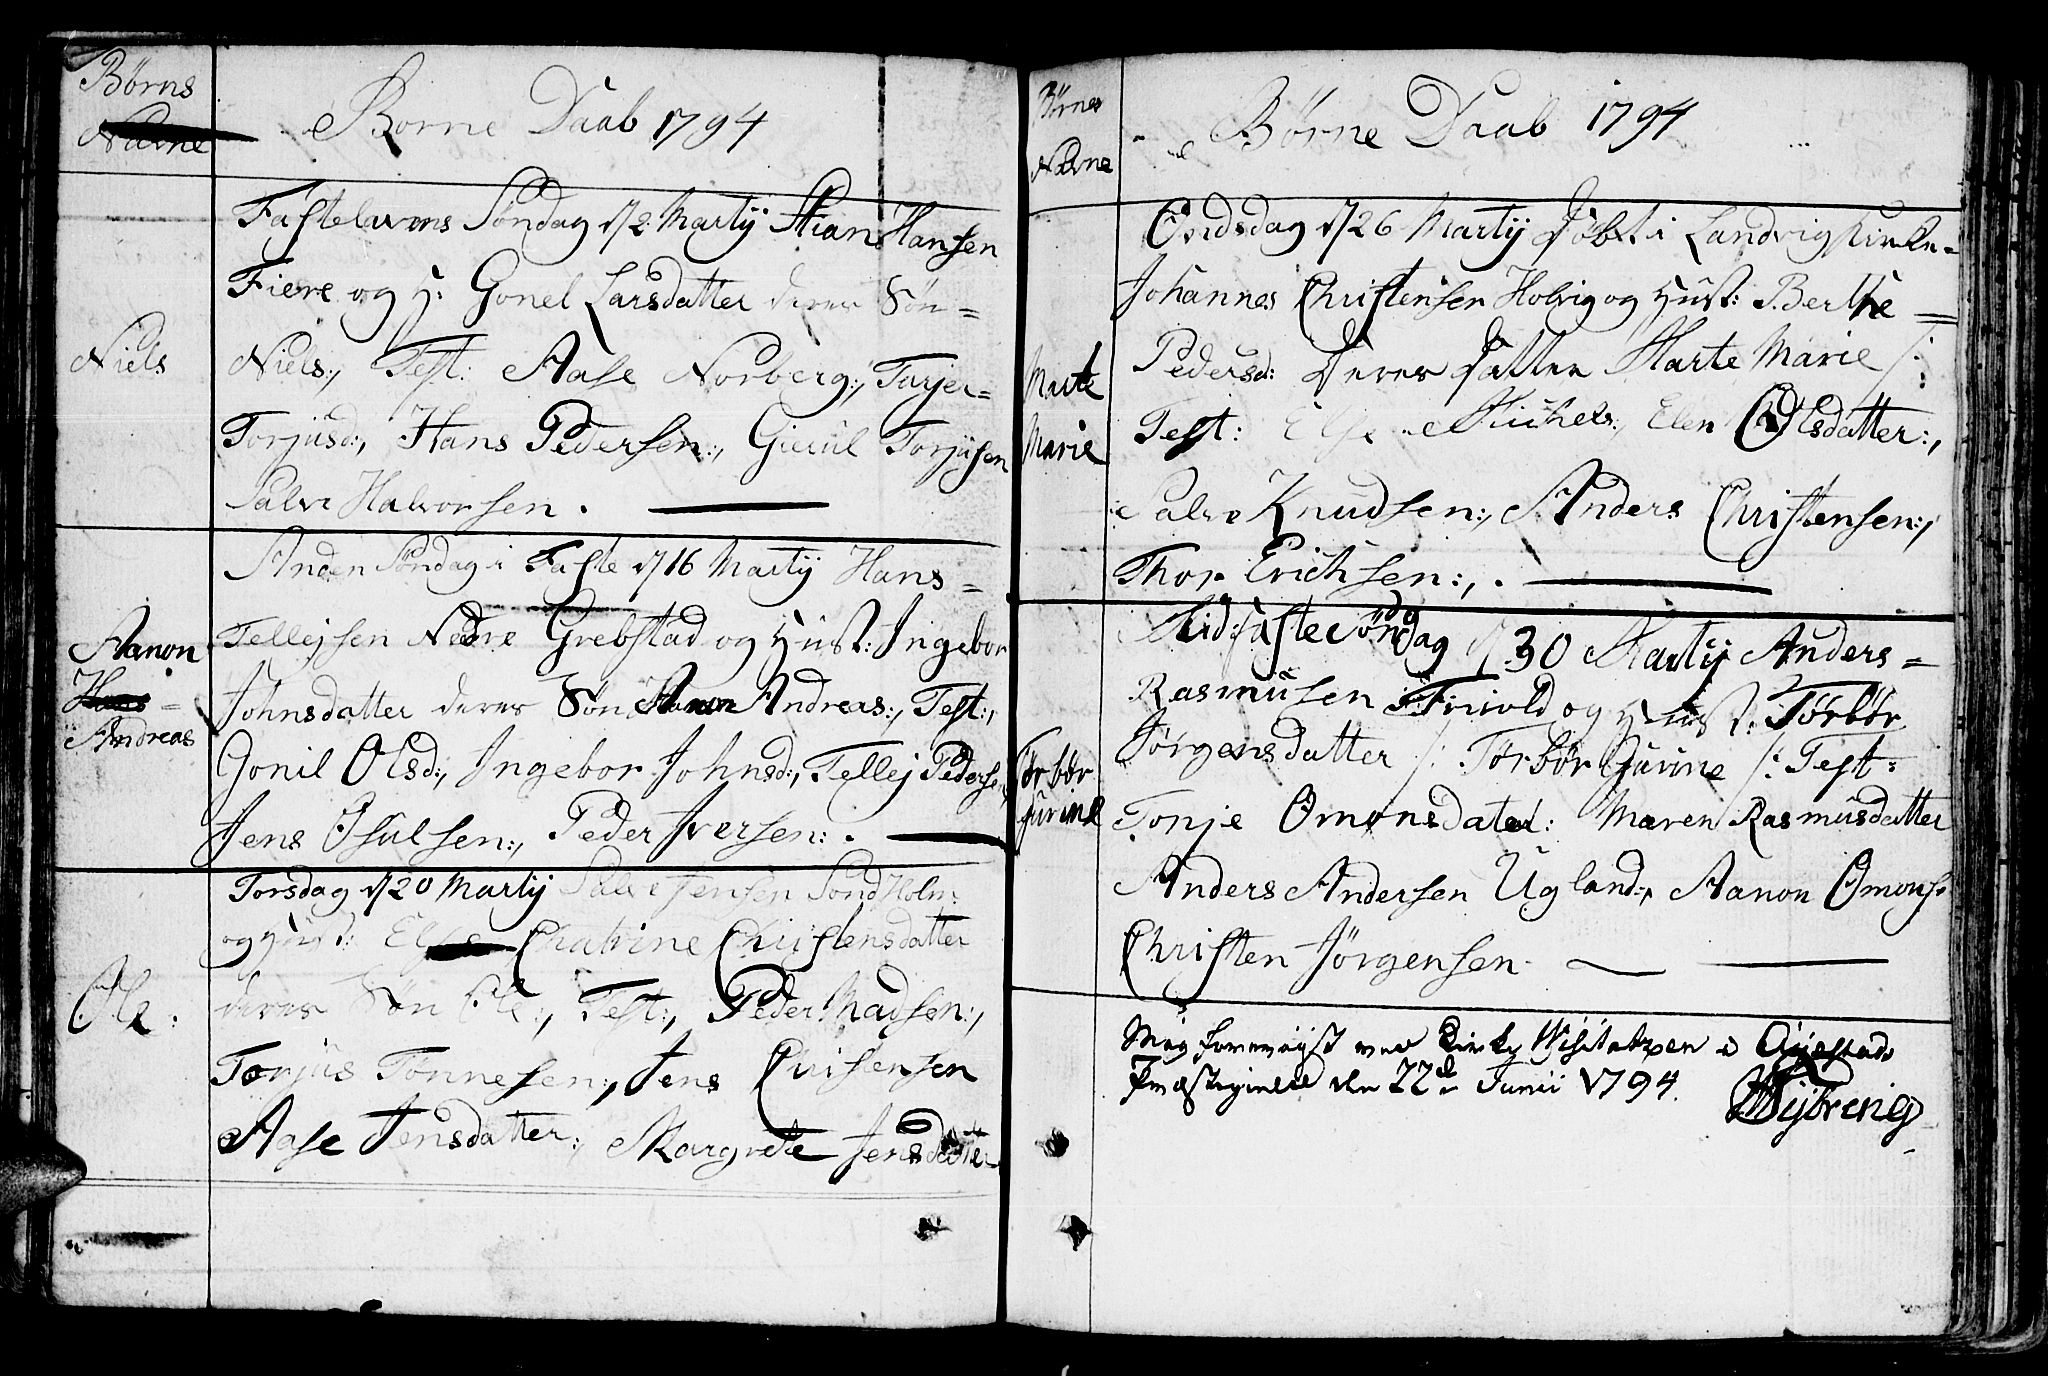 Børns
Navne
Børne Daab 1794
Fastelavns Søndag d/2 Martij Stian Hansen
Fiere og H: Gonel Larsdatter deres Søn =
Niels
Niels:, Test: Aase Norberg:, Turjer =
Torjusd:, Hans Pedersen:, Giuul Torjusen
Salve Halvorsen. —
Anden Søndag i Faste d/16 Martij Hans =
Aanon
Hans =
Andreas
Tellejsen Nedre Grebstad og Hust: Ingebor
Johnsdatter deres Søn Aanon Andreas:, Test:,
Gonil Olsd:, Ingebor Johnsd:, Tellej Pedersen
Jens Osulsen:, Peder Iversen:. —
Torsdag d/20 Martij Salve Jensen Sønd Holm
og Hust: Else Chatrine Christensdatter
Ole:
deres Søn Ole:, Test:, Peder Madsen:,
Torjus Tonnesen:, Jens Chrisensen
Aase Jensdatter:, Margrete Jensdatter
Børnes
Navne
Børne Daab 1794
Ondsdag d/26 Martij Døbt i Landvig Kirke =
Johannes Christensen Holvig og Hust: Berthe =
Marte
Marie
Pedersd: Deres Datter Marte Marie /:
Test: Else Michels:, Elen Olsdatter:,
Salve Knudsen:, Anders Christensen:,
Thor Erichsen:,. —
Midfaste Søndag d/30 Martij Anders =
Rasmusen Frivold og Hust: Tørbør
Tørbør
Gurine
Jørgensdatter /: Tørbør Gurine /: Test:
Tonje Omonsdater: Maren Rasmusdatter
Anders Andersen Ugland:, Aanon Omons:
Christen Jørgensen — —
Mig foreviist ved Kirke Visitatzen i Øyestads
Præstegield den 22d Junii 1794.